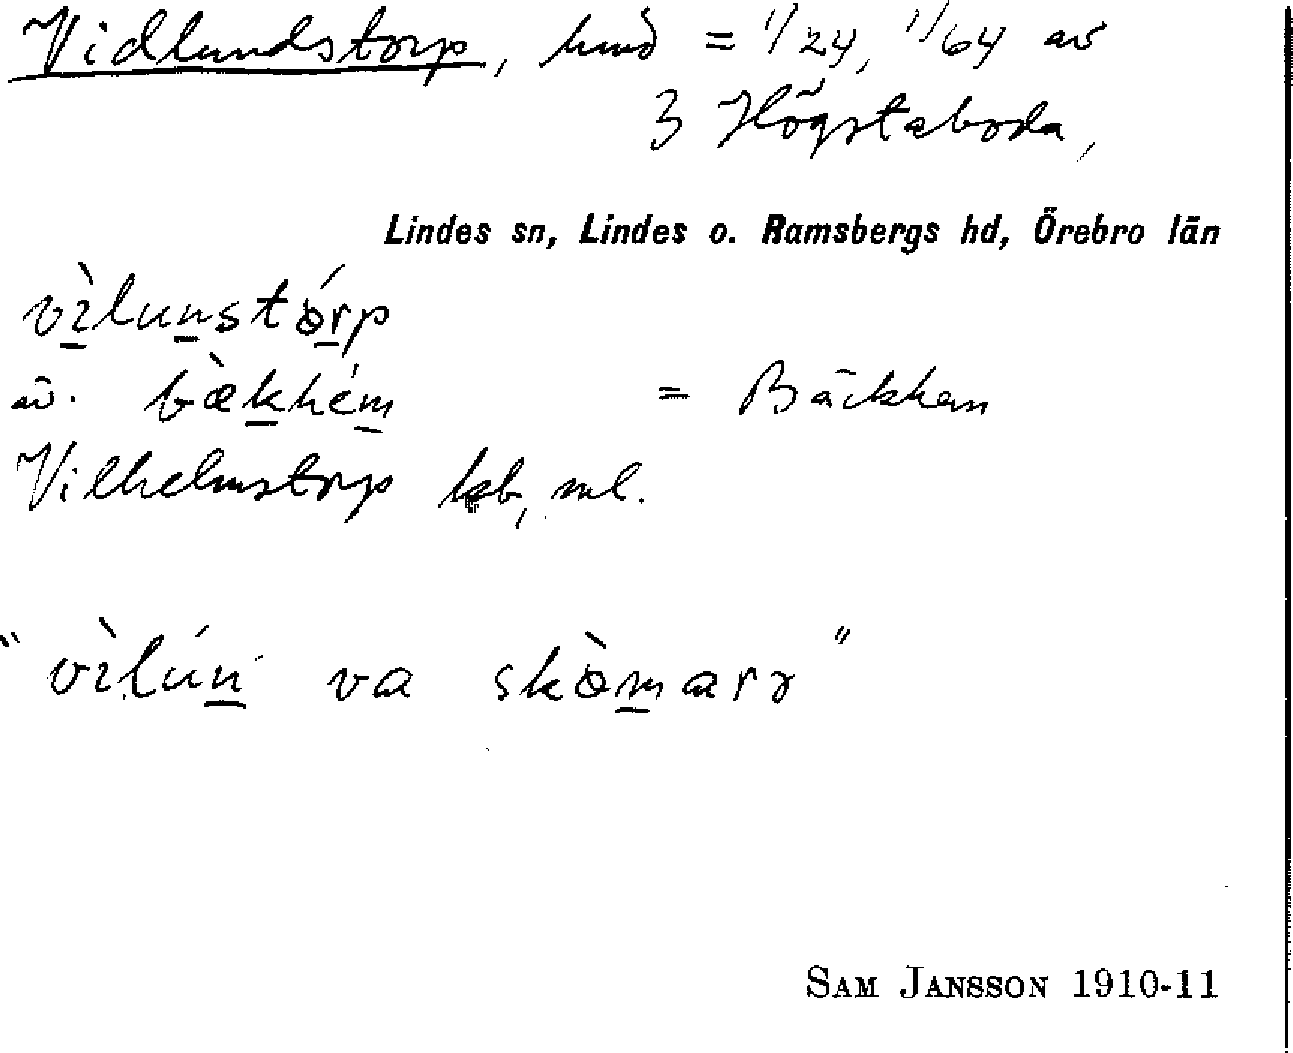 Vidlundstorp, hmd = 1/24, 11/64 av
3 Högstaboda,
Lindes sn, Lindes o. Ramsbergs hd, Örebro län
vı̀lunstórp
äv. bæ̀khém = Bäckhem
Vilhelmstorp lsb, ml.
"vı̀lún va skòmarɤ"
SAM JANSSON 1910-11